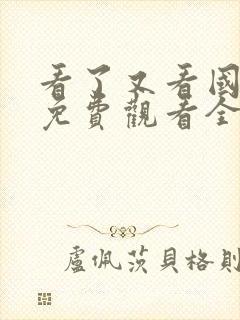 看了又看國
免費觀看全
盧佩茨貝格則